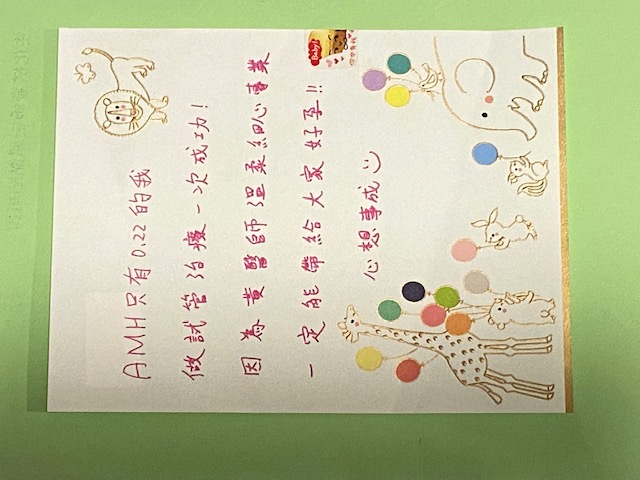 AMH只有0.22的我
做試管治療一次成功!
因為黃醫師溫柔細心專業
一定能帶給大家好孕!!
心想事成
Baby